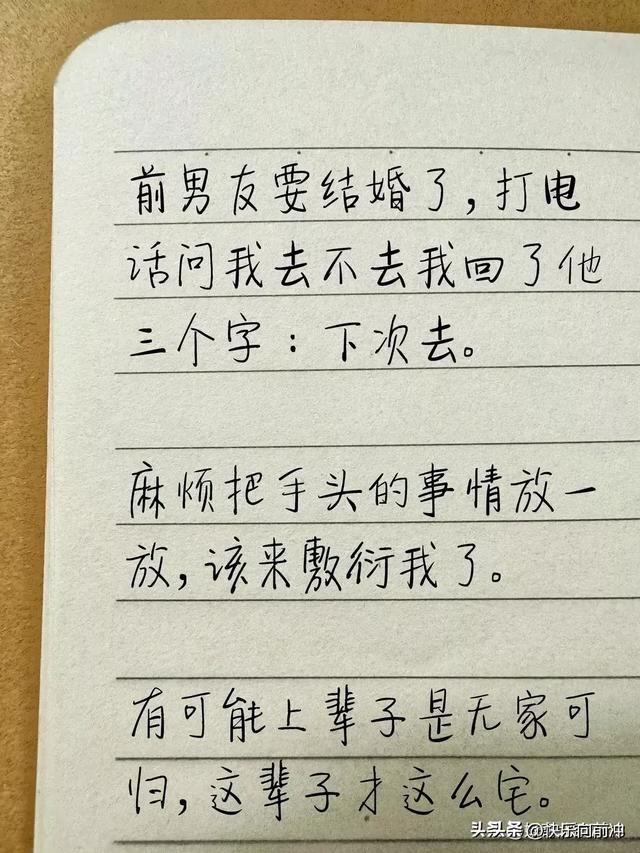 前男友要结婚了,打电
话问我去不去我回了他
三个字:下次去。
麻烦把手头的事情放一
放,该来敷衍我了。
有可能上辈子是无家可
归,这辈子才这么宅。
头条 @快乐向前冲